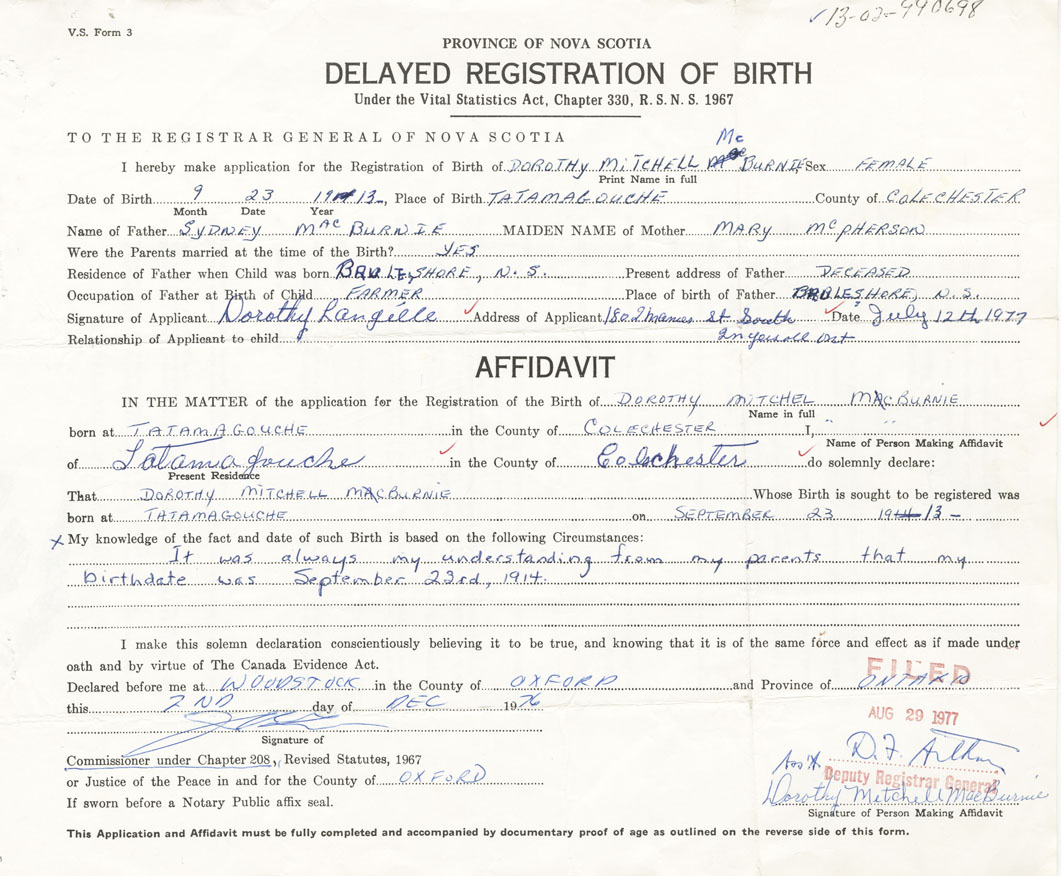 ✓13-02-990698
V.S. Form 3
PROVINCE OF NOVA SCOTIA
DELAYED REGISTRATION OF BIRTH
Under the Vital Statistics Act, Chapter 330, R.S.N.S. 1967
TO THE REGISTRAR GENERAL OF NOVA SCOTIA
Mc
I hereby make application for the Registration of Birth of DOROTHY MITCHELL BURNIE Sex FEMALE
Print Name in full
Date of Birth 9 23 19 13 , Place of Birth TATAMAGOUCHE County of COLECHESTER
Month Date Year
Name of Father SYDNEY MAC BURNIE MAIDEN NAME of Mother MARY MCPHERSON
Were the Parents married at the time of the Birth? YES
Residence of Father when Child was born BRULESHORE, N.S. Present address of Father DECEASED
Occupation of Father at Birth of Child FARMER Place of birth of Father BRULESHORE, N.S.
Signature of Applicant Dorothy Langille Address of Applicant St. South Date July 12th 1977
Relationship of Applicant to child Ingersoll Ont
AFFIDAVIT
IN THE MATTER of the application for the Registration of the Birth of DOROTHY MITCHEL MACBURNIE
Name in full
born at TATAMAGOUCHE in the County of COLECHESTER I, " "
Name of Person Making Affidavit
of Tatamagouche in the County of Colechester do solemnly declare:
Present Residence
That DOROTHY MITCHELL MACBURNIE Whose Birth is sought to be registered was
born at TATAMAGOUCHE on SEPTEMBER 23 19 13 -
x My knowledge of the fact and date of such Birth is based on the following Circumstances:
It was always my understanding from my parents that my
birthdate was September 23rd, 1914.
I make this solemn declaration conscientiously believing it to be true, and knowing that it is of the same force and effect as if made under
oath and by virtue of The Canada Evidence Act.
FILED
Declared before me at WOODSTOCK in the County of OXFORD and Province of ONTARIO
this 2ND day of DEC 1976
AUG 29 1977
Signature of
Commissioner under Chapter 208, Revised Statutes, 1967
or Justice of the Peace in and for the County of OXFORD
If sworn before a Notary Public affix seal.
Ass't D.F.
Deputy Registrar General
Dorothy Mitchell MacBurnie
Signature of Person Making Affidavit
This Application and Affidavit must be fully completed and accompanied by documentary proof of age as outlined on the reverse side of this form.